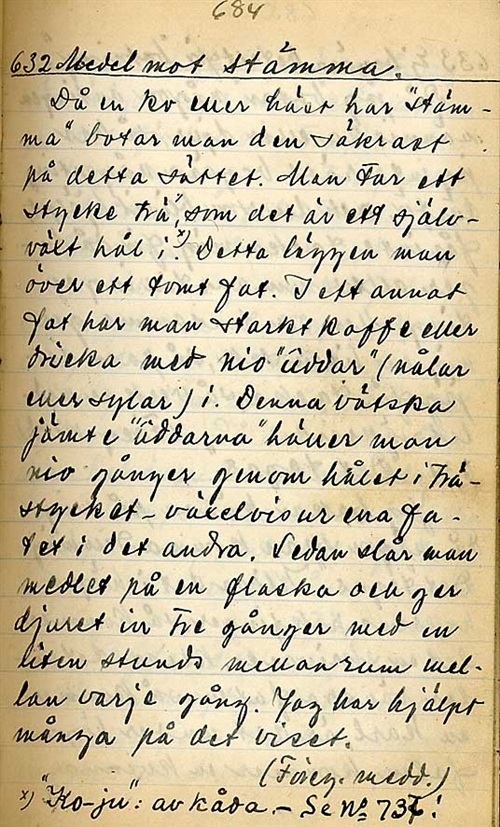 684
632 Medel mot stämma.
Då en ko eller häst har "stäm-
ma" botar man den säkrast
på detta sättet. Man tar ett
stycke trä", som det är ett själv-
växt hål i.x) Detta lägger man
över ett tomt fat. I ett annat
fat har man starkt kaffe eller
dricka med nio "üddar" (nålar
eller sylar) i. Denna vätska
jämte "üddarna" häller man
nio gånger genom hålet i trä-
stycket - växelvis ur ena fa-
tet i det andra. Sedan slår man
medlet på en flaska och ger
djuret in tre gånger med en
liten stunds mellanrum mel-
lan varje gång. Jag har hjälpt
många på det viset.
(Föreg. medd.)
x) "Ko-ju": av kåda. - Se No